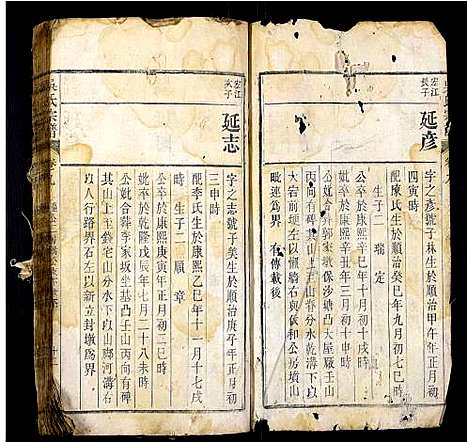 宏江
長子
延彥
字之彥號子林生於順治甲午年正月初
四寅時
配廖氏生於順治癸巳年九月初七戌時
生子二 瑞 定
公卒於康熙辛巳年十月初十戌時
妣卒於康熙辛丑年三月初十申時
公妣合葬郭家墩保沙塘凸大屋壬山
丙向有碑 上至山脊分水乾溝下以
大宕前埂左以墈石與儀和公房墳山
毗連爲界 有傳載後
宏江
次子
延志
字之志號子美生於順治庚子年正月初
三申時
配李氏生於康熙乙巳年十一月十七戌
時 生子一 順章
公卒於康熙庚寅年二月初二巳時
妣卒於乾隆戊辰年七月二十八未時
公妣合葬李家坂坐基凸壬山丙向有碑
其山上至錢宅山分水下以山腳河溝右
以人行路界石左以新立封墩爲界
吳氏宗譜
卷九